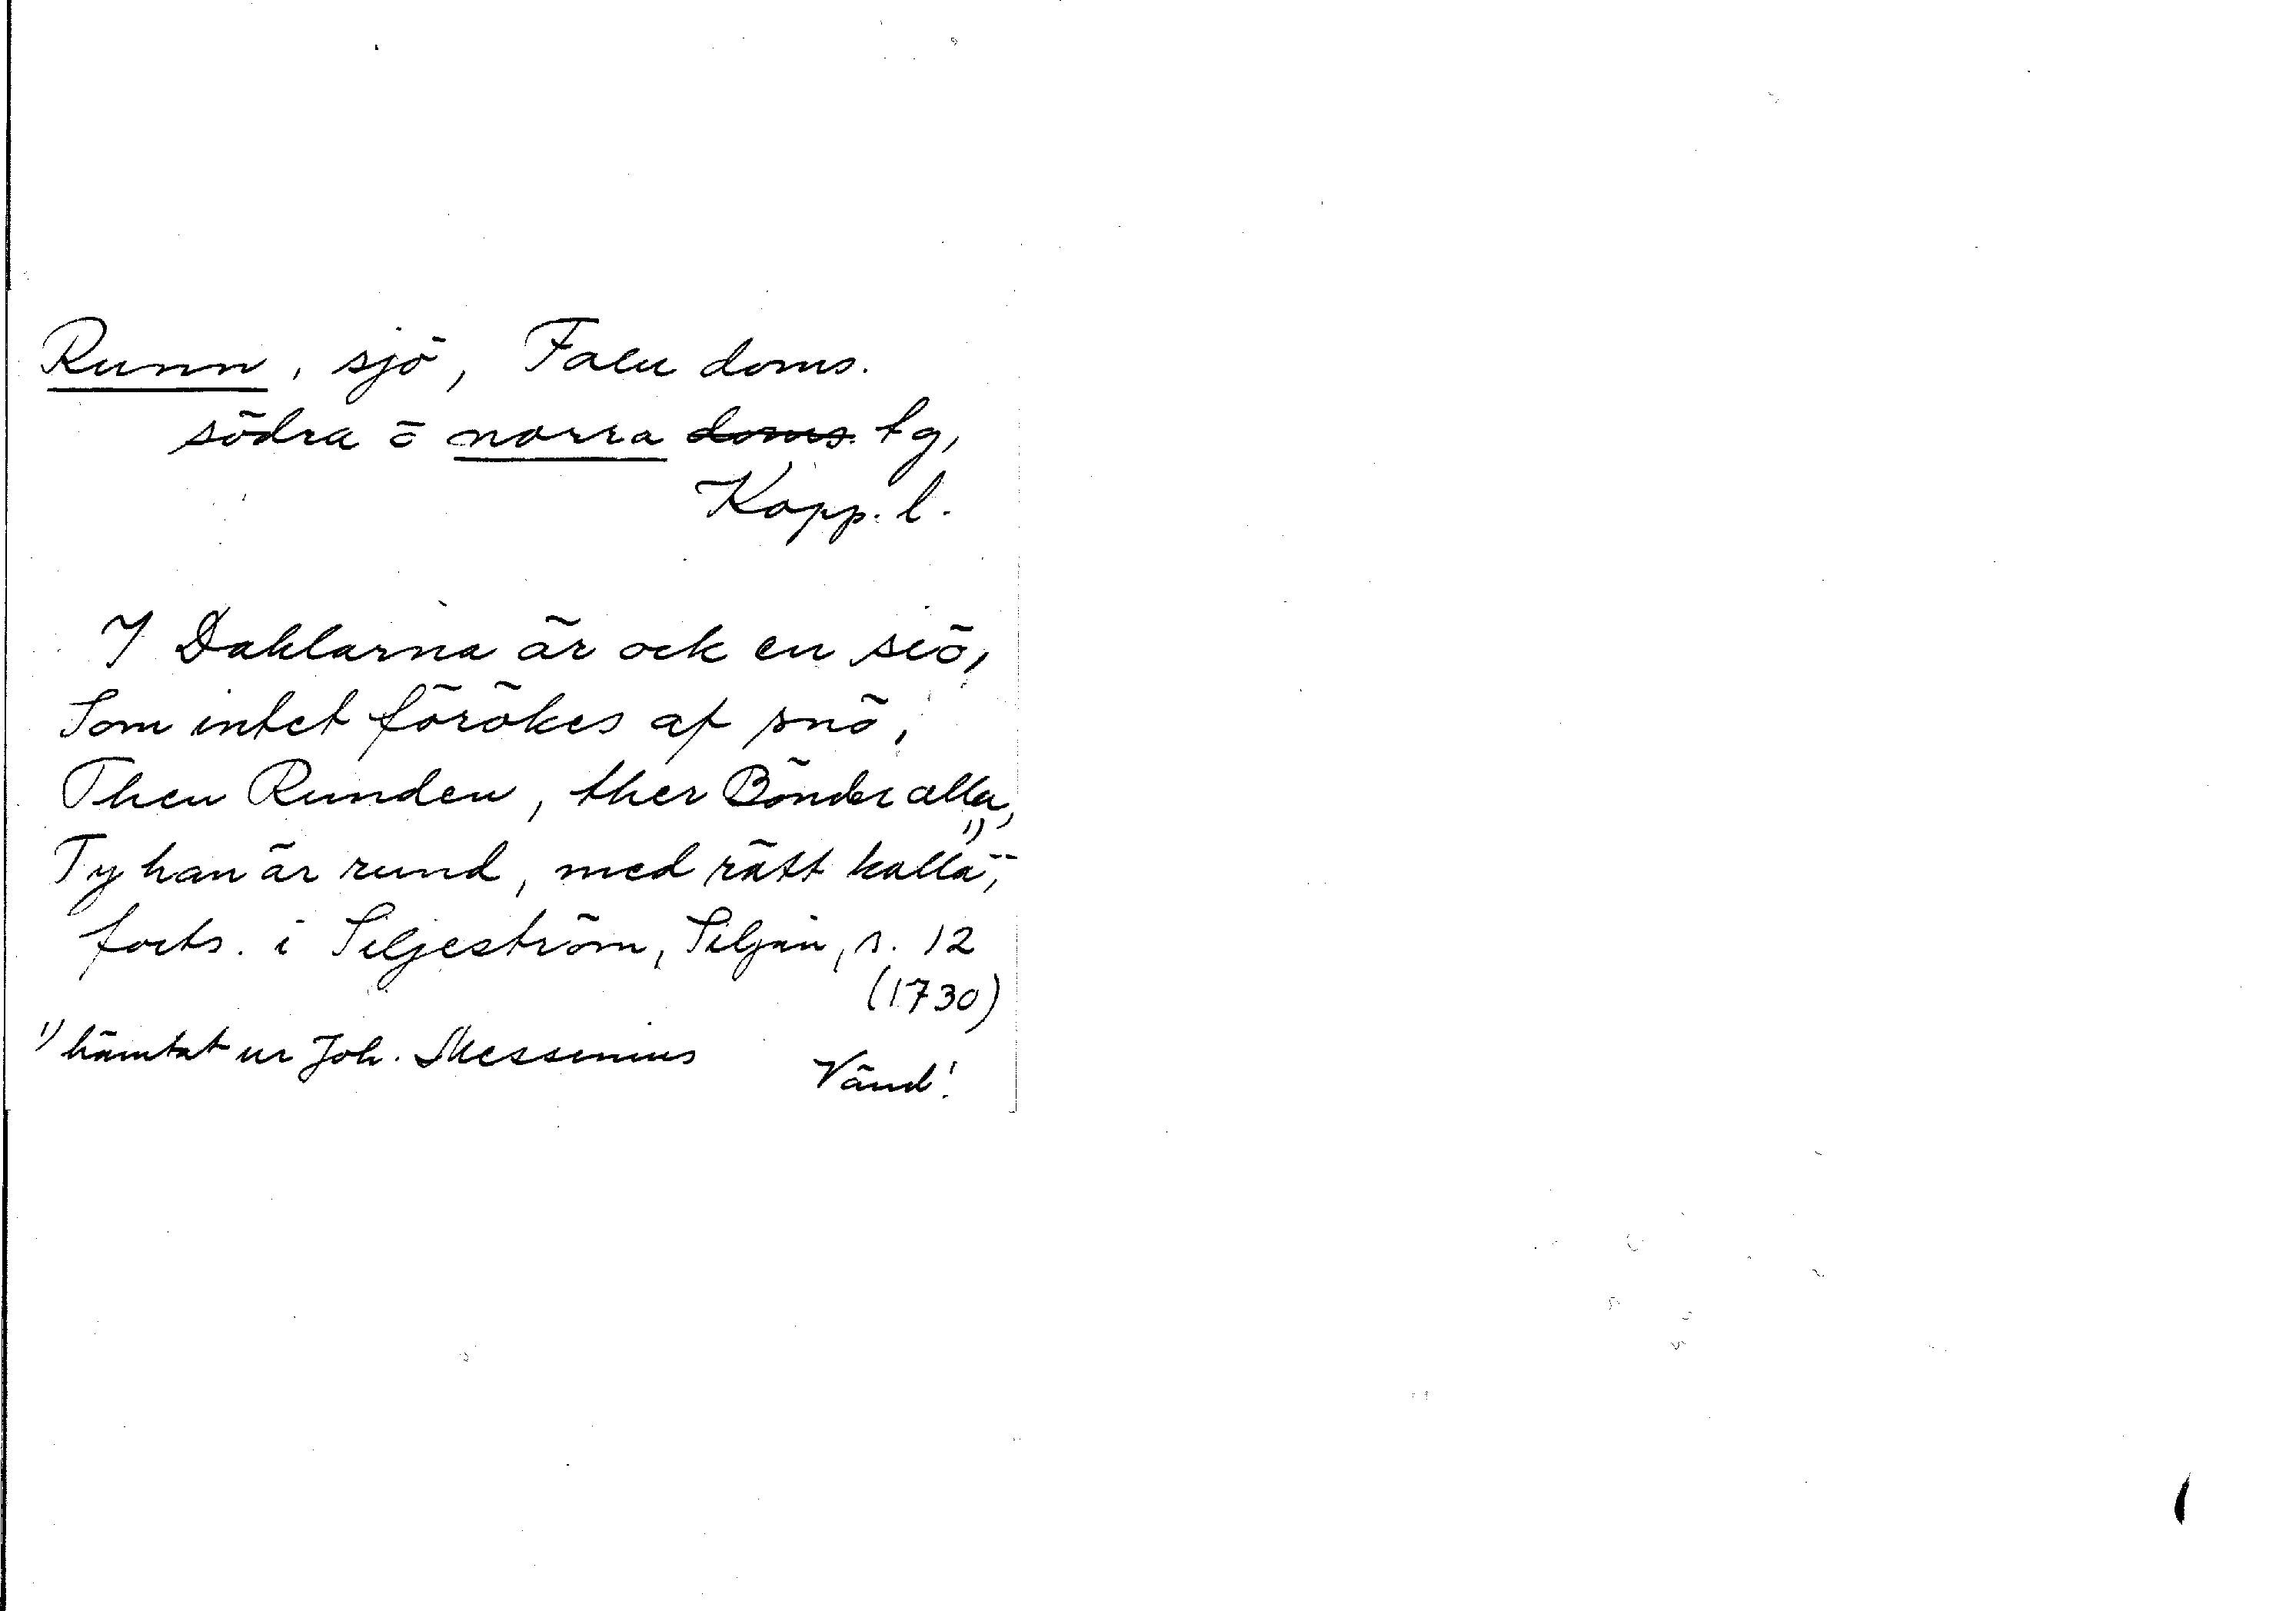 Runn, sjö, Falu doms.
södra o norra doms. tg,
Kopp. l.
I Dahlarna är ock en siö,
Som intet förökes af snö,
Then Runden, ther Bönder alla,
Ty han är rund, med rätt kalla";1)
forts. i Siljeström, Siljan, s. 12
(1730)
1) hämtat ur Joh. Messenius
Vänd!